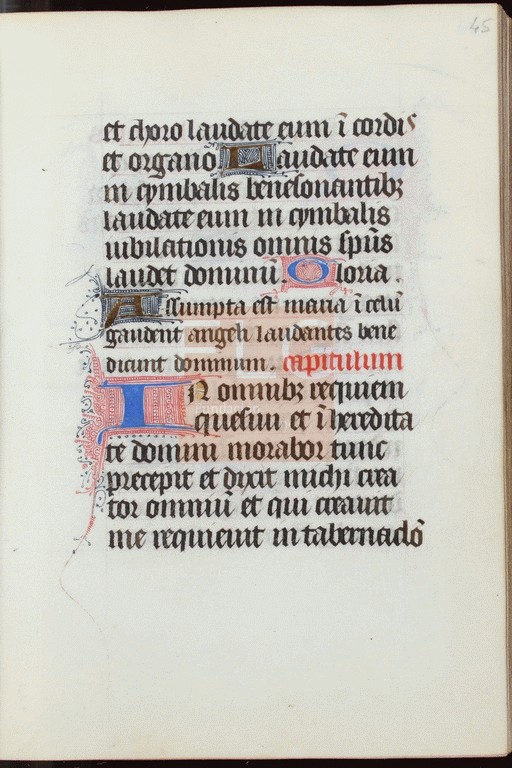 45
et choro laudate eum ī cordis
et organo Laudate eum
in cymbalis benesonantibꝫ
laudate eum in cymbalis
iubilationis omnis sp̄us
laudet dominū. Oloria.
Assumpta est maria ī celū
gaudent angeli laudantes bene
dicunt dominum. capitulum
IN omnibꝫ requiem
quesiui et ī heredita
te domini morabor tunc
precepit et dixit michi crea
tor omniū et qui creauit
me requieuit in tabernaclō